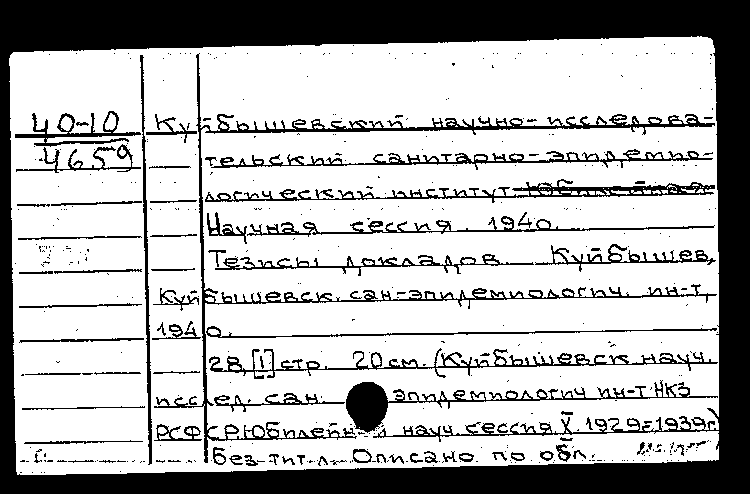 40-10 Куйбышевский научно-исследова-
4659 тельский санитарно-эпидемио-
логический институт Юбилейная
Научная сессия. 1940.
Тезисы докладов. Куйбышев,
Куйбышевск. сан-эпидемиологич. ин-т,
1940.
28, [1] стр. 20 см. (Куйбышевск науч.
исслед. сан. эпидемиологич ин-т НКЗ
РСФСР. Юбилейн науч. сессия X 1929-1939г)
Без тит. л. Описано по обл.